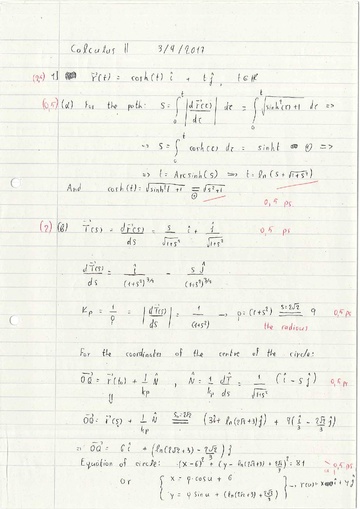 Calculus II 3/4/2017
1) r⃗(t) = cosh(t) i + t j, t∈ℝ
(0,5) (a) For the path: S = ∫₀ᵗ |dr⃗(t)/dt| dt = ∫₀ᵗ √(sinh²(t)+1) dt ⇒
⇒ S = ∫₀ᵗ cosh(t) dt = sinh t ⇒
⇒ t = Arcsinh(s) ⇒ t = ln(s + √(1+s²))
And cosh(t) = √(sinh²t + 1) = √(s²+1)
0,5 ps.
(β) T⃗(s) = dr⃗(s)/ds = s/√(1+s²) i + j/√(1+s²) 0,5 ps.
dT⃗(s)/ds = i/(1+s²)^(3/2) - s j/(1+s²)^(3/2)
Kp = 1/ρ = |dT⃗(s)/ds| = 1/(1+s²) → ρ = (1+s²) s=2√2 9 0,5 ps.
the radius
For the coordinates of the centre of the circle:
OQ⃗ = r⃗(t₀) + 1/kp N̂, N̂ = 1/kp dT/ds = 1/√(1+s²) (i - s j) 0,5 ps.
OQ⃗ = r⃗(s) + 1/kp N̂ s=2√2 (3i + ln(2√2+3) j) + 9(i/3 - 2√2/3 j)
⇒ OQ⃗ = 6i + (ln(2√2+3) - 2√2) j
Equation of circle: (x-6)² + (y - ln(2√2+3) + 2√2)² = 81 0,5 ps.
or { x = 9 cos u + 6
y = 9 sin u + (ln(2√2+3)